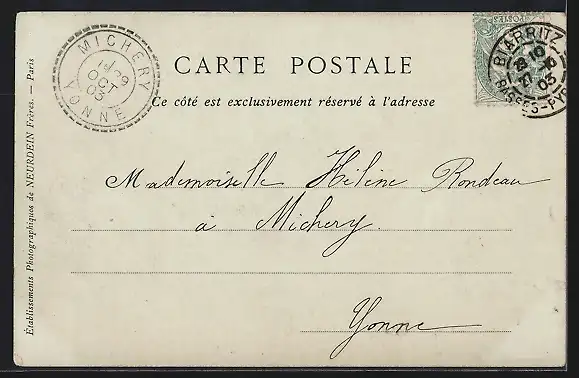 MICHERY
OCT
03
YONNE
POSTES
BIARRITZ
10
03
BASSES-PYR
CARTE POSTALE
Ce côté est exclusivement réservé à l'adresse
Mademoiselle Hélène Rondeau
à Michery.
Yonne
Établissements Photographiques de NEURDEIN Frères. — Paris